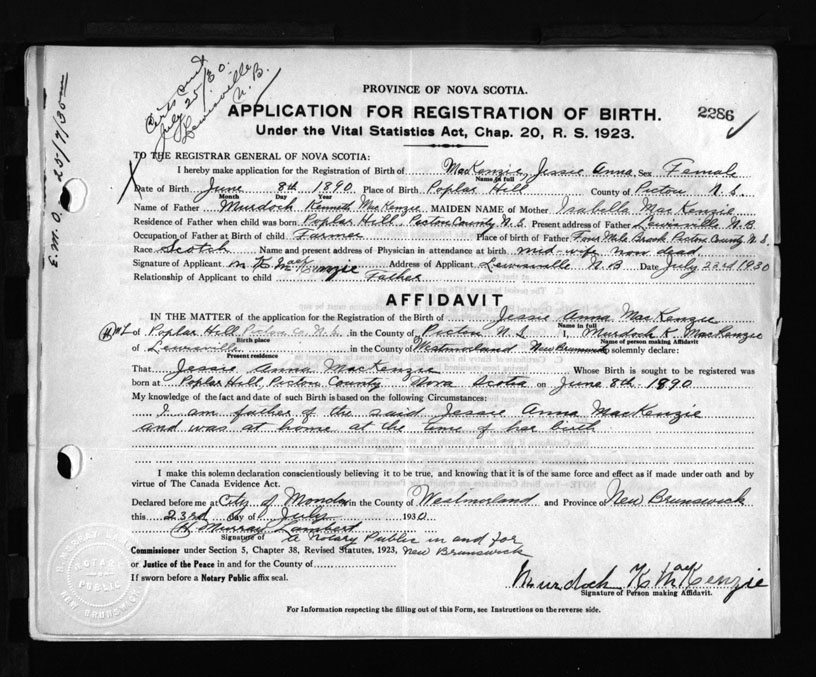 Certs sent
July 25/30.
Lewisville
N.B.
E.M.O. 25/7/30
PROVINCE OF NOVA SCOTIA.
APPLICATION FOR REGISTRATION OF BIRTH.
2286
Under the Vital Statistics Act, Chap. 20, R. S. 1923.
TO THE REGISTRAR GENERAL OF NOVA SCOTIA:
I hereby make application for the Registration of Birth of MacKenzie, Jessie Anna Sex Female
Name in full
Date of Birth June 8th 1890 Place of Birth Poplar Hill County of Pictou N.S.
Month Day Year
Name of Father Murdoch Kenneth MacKenzie MAIDEN NAME of Mother Isabella MacKenzie
Residence of Father when child was born Poplar Hill, Pictou County N.S. Present address of Father Lewisville N.B
Occupation of Father at Birth of child Farmer Place of birth of Father Four Mile Brook Pictou County N.S.
Race Scotch Name and present address of Physician in attendance at birth mid-wife now dead.
Signature of Applicant M K MacKenzie Address of Applicant Lewisville N.B Date July 23rd 1930
Relationship of Applicant to child Father
AFFIDAVIT
IN THE MATTER of the application for the Registration of the Birth of Jessie Anna MacKenzie
Name in full
of Poplar Hill Pictou Co N.S. in the County of Pictou N.S I, Murdoch K. MacKenzie
Birth place Name of person making Affidavit
of Lewisville in the County of Westmorland New Brunswick solemnly declare:
Present residence
That Jessie Anna MacKenzie Whose Birth is sought to be registered was
born at Poplar Hill, Pictou County Nova Scotia on June 8th 1890
My knowledge of the fact and date of such Birth is based on the following Circumstances:
I am father of the said Jessie Anna MacKenzie
and was at home at the time of her birth
I make this solemn declaration conscientiously believing it to be true, and knowing that it is of the same force and effect as if made under oath and by
virtue of The Canada Evidence Act.
Declared before me at City of Moncton in the County of Westmorland and Province of New Brunswick
this 23rd day of July 1930
H. Murray Lambert
Signature of a Notary Public in and for
Commissioner under Section 5, Chapter 38, Revised Statutes, 1923, New Brunswick
or Justice of the Peace in and for the County of
If sworn before a Notary Public affix seal.
NOTARY
PUBLIC
NEW BRUNSWICK
Murdoch K MacKenzie
Signature of Person making Affidavit.
For Information respecting the filling out of this Form, see Instructions on the reverse side.